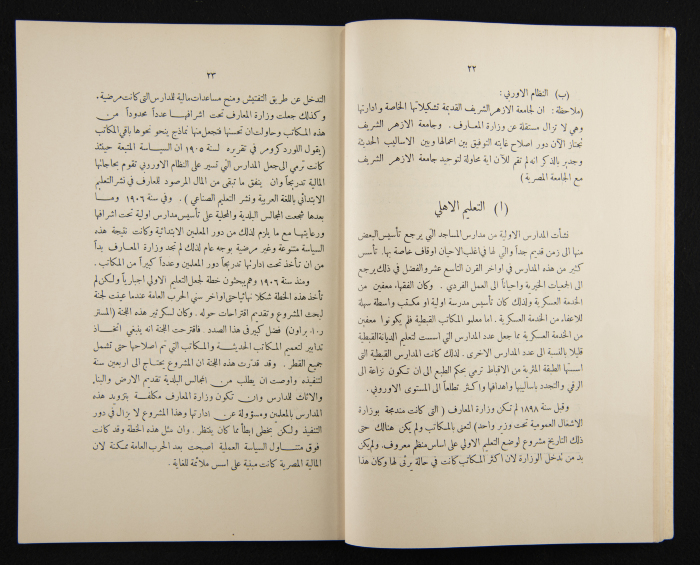 ٢٢
(ب) النظام الاوربي:
(ملاحظة: ان لجامعة الازهر الشريف القديمة تشكيلاتها الخاصة وادارتها
وهي لا تزال مستقلة عن وزارة المعارف. وجامعة الازهر الشريف
تجتاز الآن دور اصلاح غايته التوفيق بين اعمالها وبين الاساليب الحديثة
وجدير بالذكر انه لم تقم للآن اية محاولة لتوحيد جامعة الازهر الشريف
مع الجامعة المصرية)
(ا) التعليم الاهلي
نشأت المدارس الاولية من مدارس المساجد التي يرجع تأسيس البعض
منها الى زمن قديم جداً والتي لها في اغلب الاحيان اوقاف خاصة بها. تأسس
كثير من هذه المدارس في اواخر القرن التاسع عشر والفضل في ذلك يرجع
الى الجمعيات الخيرية واحياناً الى العمل الفردي. وكان الفقهاء معفين من
الخدمة العسكرية ولذلك كان تأسيس مدرسة اولية او مكتب واسطة سهلة
للاعفاء من الخدمة العسكرية. اما معلمو المكاتب القبطية فلم يكونوا معفين
من الخدمة العسكرية مما جعل عدد المدارس التي اسست لتعليم الديانة القبطية
قليلا بالنسبة الى عدد المدارس الاخرى. لذلك كانت المدارس القبطية التى
اسستها الطبقة المثرية من الاقباط ترمي بحكم الطبع الى ان تكون نزاعة الى
الرقي والتجدد باساليبها واهدافها واكثر تطلعاً الى المستوى الاوروبي.
وقبل سنة ١٨٩٨ لم تكن وزارة المعارف (التي كانت مندمجة بوزارة
الاشغال العمومية تحت وزير واحد) تعنى بالمكاتب ولم يكن هنالك حتى
ذلك التاريخ مشروع لوضع التعليم الاولي على اساس منظم معروف. ولم يكن
بد من تدخل الوزارة لان اكثر المكاتب كانت في حالة يرثى لها وكان هذا
٢٣
التدخل عن طريق التفتيش ومنح مساعدات مالية للمدارس التى كانت مرضية.
وكذلك جعلت وزارة المعارف تحت اشرافها عدداً محدوداً من
هذه المكاتب وحاولت ان تحسنها فتجعل منها نماذج ينحو نحوها باقي المكاتب
(يقول اللورد كرومر في تقريره لسنة ١٩٠٥ ان السياسة المتبعة حينئذ
كانت ترمي الى جعل المدارس التي تسير على النظام الاوروبي تقوم بحاجاتها
المالية تدريجاً وان ينفق ما تبقى من المال المرصود للمعارف في نشر التعليم
الابتدائي باللغة العربية ونشر التعليم الصناعي). وفي سنة ١٩٠٦ وما
بعدها شجعت المجالس البلدية والمحلية على تأسيس مدارس اولية تحت اشرافها
ورعايتها مع ما يلزم لذلك من دور المعلمين الابتدائية وكانت نتيجة هذه
السياسة متنوعة وغير مرضية بوجه عام لذلك لم تجد وزارة المعارف بداً
من ان تأخذ تحت ادارتها تدريجاً دور المعلمين وعدداً كبيراً من المكاتب.
ومنذ سنة ١٩٠٦ وهم يبحثون خطة لجعل التعليم الاولي اجبارياً ولكن لم
تأخذ هذه الخطة شكلا نهائيا حتى اواخر سني الحرب العامة عندما عينت لجنة
لبحث المشروع وتقديم اقتراحات حوله. وكان لسكرتير هذه اللجنة (المستر
ر. ا. براون) فضل كبير فى هذا الصدد. فاقترحت اللجنة انه ينبغي اتخاذ
تدابير لتعميم المكاتب الحديثة والمكاتب التي تم اصلاحها حتى تشمل
جميع القطر. وقد قدرت هذه اللجنة ان المشروع يحتاج الى اربعين سنة
لتنفيذه واوصت ان يطلب من المجالس البلدية تقديم الارض والبناء
والاثاث للمدارس وان تكون وزارة المعارف مكلفة بتزويد هذه
المدارس بالمعلمين ومسؤولة عن ادارتها وهذا المشروع لا يزال في دور
التنفيذ ولكن بخطى ابطأ مما كان ينتظر. وان مثل هذه الخطة وقد كانت
فوق متناول السياسة العملية اصبحت بعد الحرب العامة ممكنة لان
المالية المصرية كانت مبنية على اسس ملائمة للغاية.